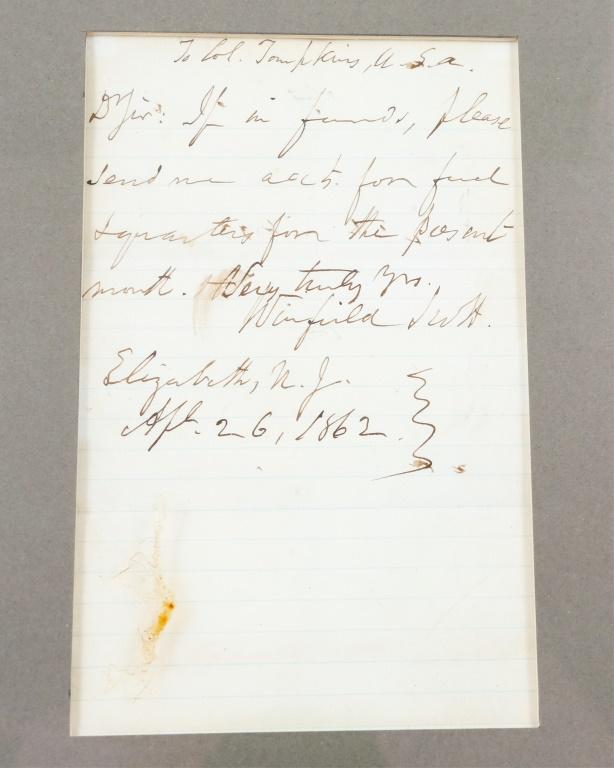 To Col. Tompkins, U.S.A.
D Sir: If in funds, please
send me acct. for fuel
& quarters for the present
month. Very truly Yrs.
Winfield Scott.
Elizabeth, N.J.
Apl. 26, 1862.